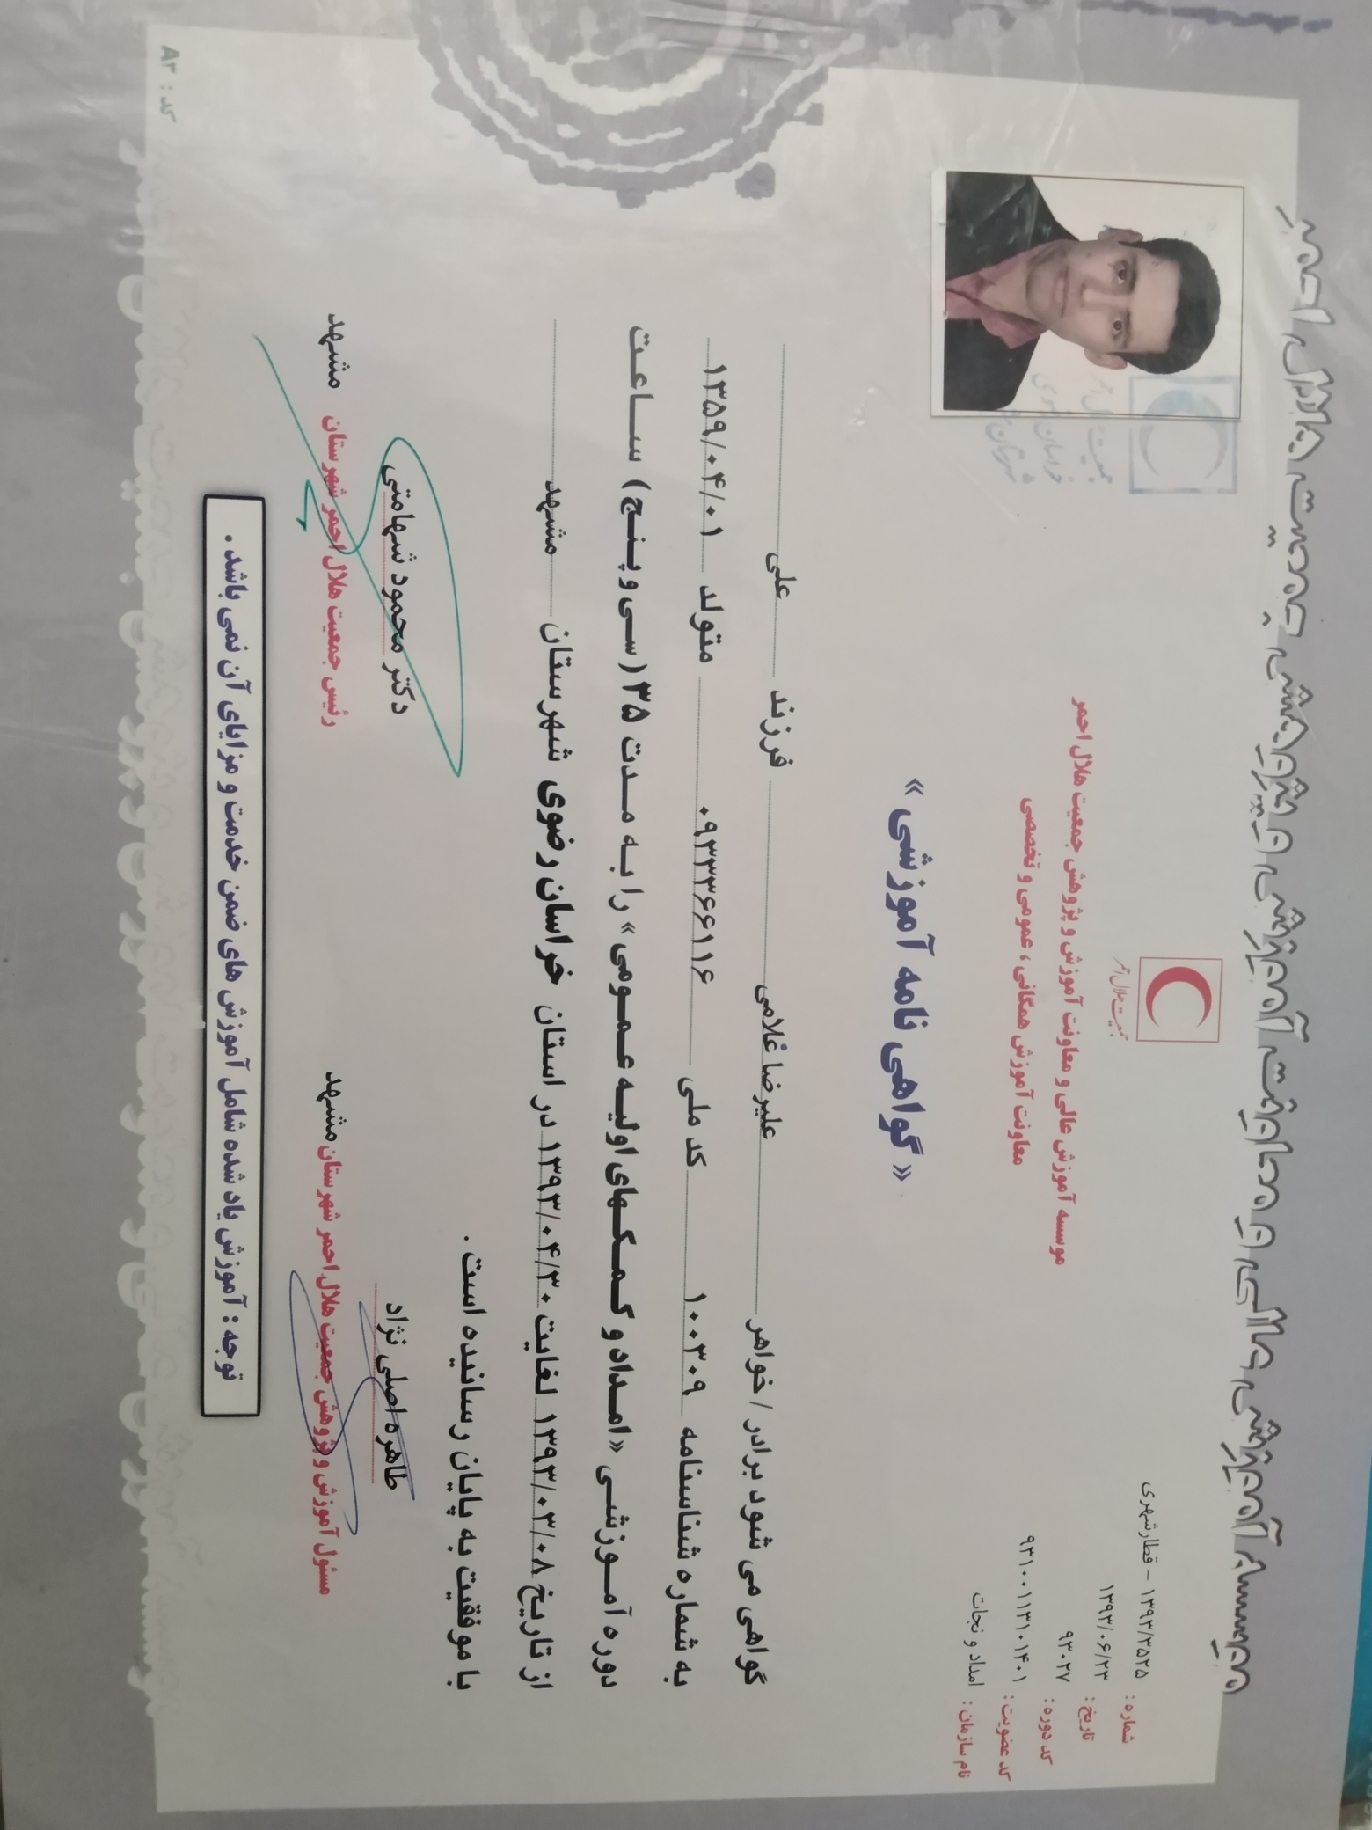 موسسه آموزش عالی و معاونت آموزش و پژوهش جمعیت هلال احمر
جمعیت هلال احمر
موسسه آموزش عالی و معاونت آموزش و پژوهش جمعیت هلال احمر
معاونت آموزش همگانی، عمومی و تخصصی
شماره : ۱۳۹۳/۳۵۲۵ - قطار شهری
تاریخ : ۱۳۹۳/۰۶/۲۳
کد دوره : ۹۳۰۲۷
کد عضویت : ۹۳۱۰۰۱۱۳۱۰۱۴۰۱
نام سازمان : امداد و نجات
« گواهی نامه آموزشی »
گواهی می شود برادر / خواهر علیرضا غلامی فرزند علی
به شماره شناسنامه ۱۰۰۳۰۹ کد ملی ۰۹۳۳۳۶۶۱۱۶ متولد ۱۳۵۹/۰۴/۰۱
دوره آموزشی «امداد و کمکهای اولیه عمومی» را به مدت ۳۵ (سی و پنج) ساعت
از تاریخ ۱۳۹۳/۰۳/۰۸ لغایت ۱۳۹۳/۰۴/۳۰ در استان خراسان رضوی شهرستان مشهد
با موفقیت به پایان رسانیده است .
طاهره اصلی نژاد
مسئول آموزش و پژوهش جمعیت هلال احمر شهرستان مشهد
دکتر محمود شهامتی
رئیس جمعیت هلال احمر شهرستان مشهد
توجه : آموزش یاد شده شامل آموزش های ضمن خدمت و مزایای آن نمی باشد .
کد : A۳